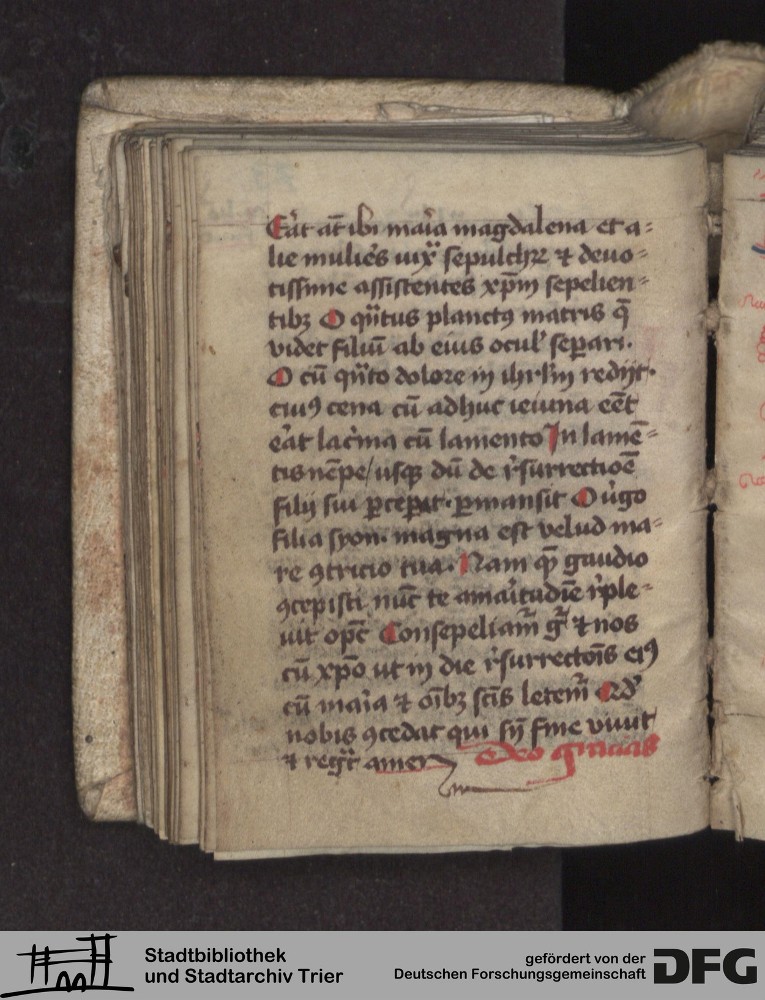 Erāt aūt ibi maria magdalena et a=
lie mulieres iuxᵃ sepulchrꝫ ⁊ deuo=
tissime assistentes xp̄m sepelien=
tibꝫ O qᵃntus planctꝰ matris q̄
videt filiū ab eius ocul' sep̄ari.
O cū qᵃnto dolore in ihrl'm redijt.
cuiꝰ cena cū adhuc ieiuna eēt
erat lacrima cū lamento In lamē=
tis nēpe/ usqꝫ dū de rͥsurrectiōe
filij sui p̄cepit. p̄mansit O uͥgo
filia syon. magna est velud ma=
re ꝯtricio tua. Nam qm̄ gaudio
ꝯcepisti nūc te amaritudīe rͥple=
uit op̄c Consepeliamᷣ gͦ ⁊ nos
cū xp̄o ut in die rͥsurrectōis eiꝰ
cū maria ⁊ oībꝫ scīs letemᷣ Qd'
nobis ꝯcedat qui sn̄ fine viuit
⁊ regᷓt amen Deo gracias
Stadtbibliothek
und Stadtarchiv Trier
gefördert von der
Deutschen Forschungsgemeinschaft
DFG